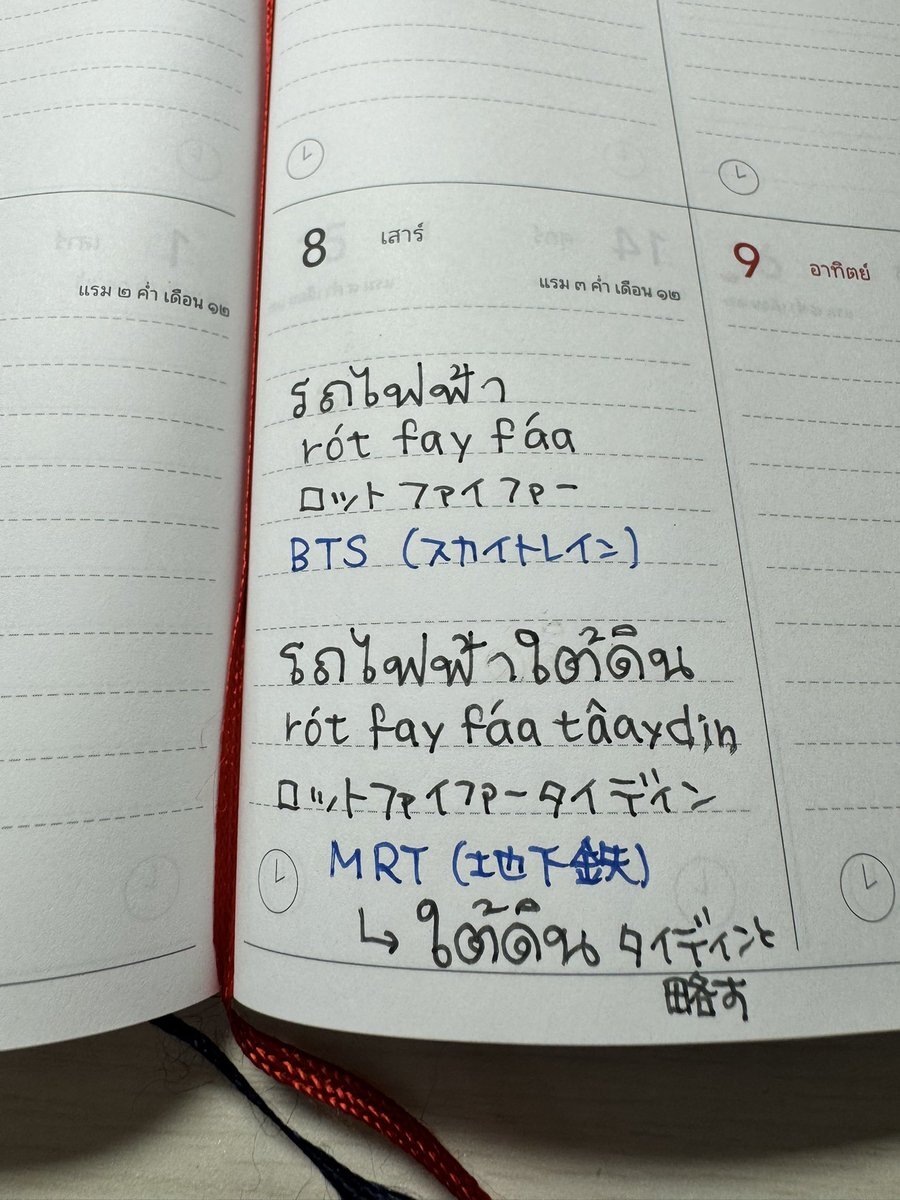 แรม ๒ ค่ำ เดือน ๑๒
8 เสาร์
แรม ๓ ค่ำ เดือน ๑๒
9 อาทิตย์
รถไฟฟ้า
rót fay fáa
ロットファイファー
BTS (スカイトレイン)
รถไฟฟ้าใต้ดิน
rót fay fáa tâaydin
ロットファイファータイディン
MRT (地下鉄)
↳ ใต้ดิน タイディンと
略す